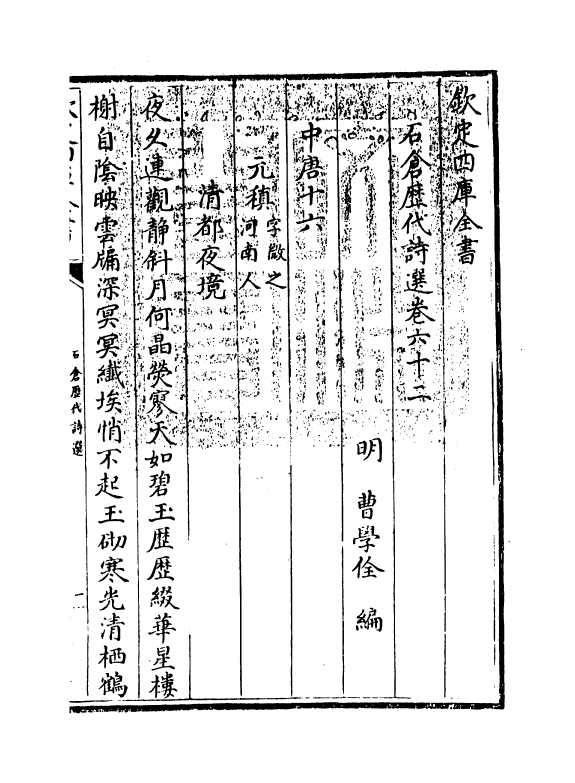 欽定四庫全書
石倉歴代詩選卷六十二
明 曹學佺 編
中唐十六
元稹字㣲之河南人
清都夜境
夜久連觀静斜月何晶熒寥天如碧玉歴歴綴華星樓
榭自陰映雲牖深冥冥纖埃悄不起玉砌寒光清栖鶴
石倉歴代詩選